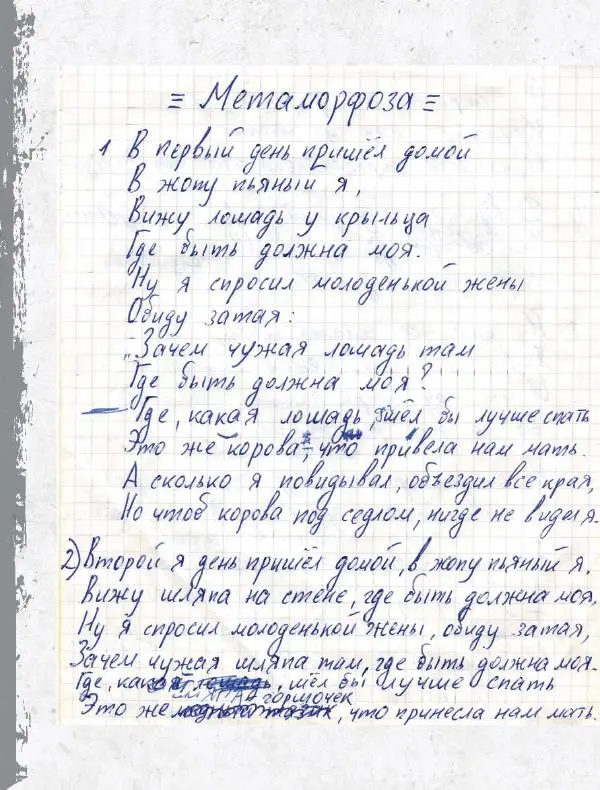 = Метаморфоза =
1 В первый день пришёл домой
В жопу пьяный я,
Вижу лошадь у крыльца
Где быть должна моя.
Ну я спросил молоденькой жены
Обиду затая:
„Зачем чужая лошадь там
Где быть должна моя?
— Где, какая лошадь, шёл бы лучше спать
Это же корова, что привела нам мать.
А сколько я повидывал, объездил все края,
Но чтоб корова под седлом, нигде не видел я.
2) Второй я день пришёл домой, в жопу пьяный я.
Вижу шляпа на стене, где быть должна моя,
Ну я спросил молоденькой жены, обиду затая,
Зачем чужая шляпа там, где быть должна моя.
Где, какая шляпа, шёл бы лучше спать
Это же горшочек, что принесла нам мать.